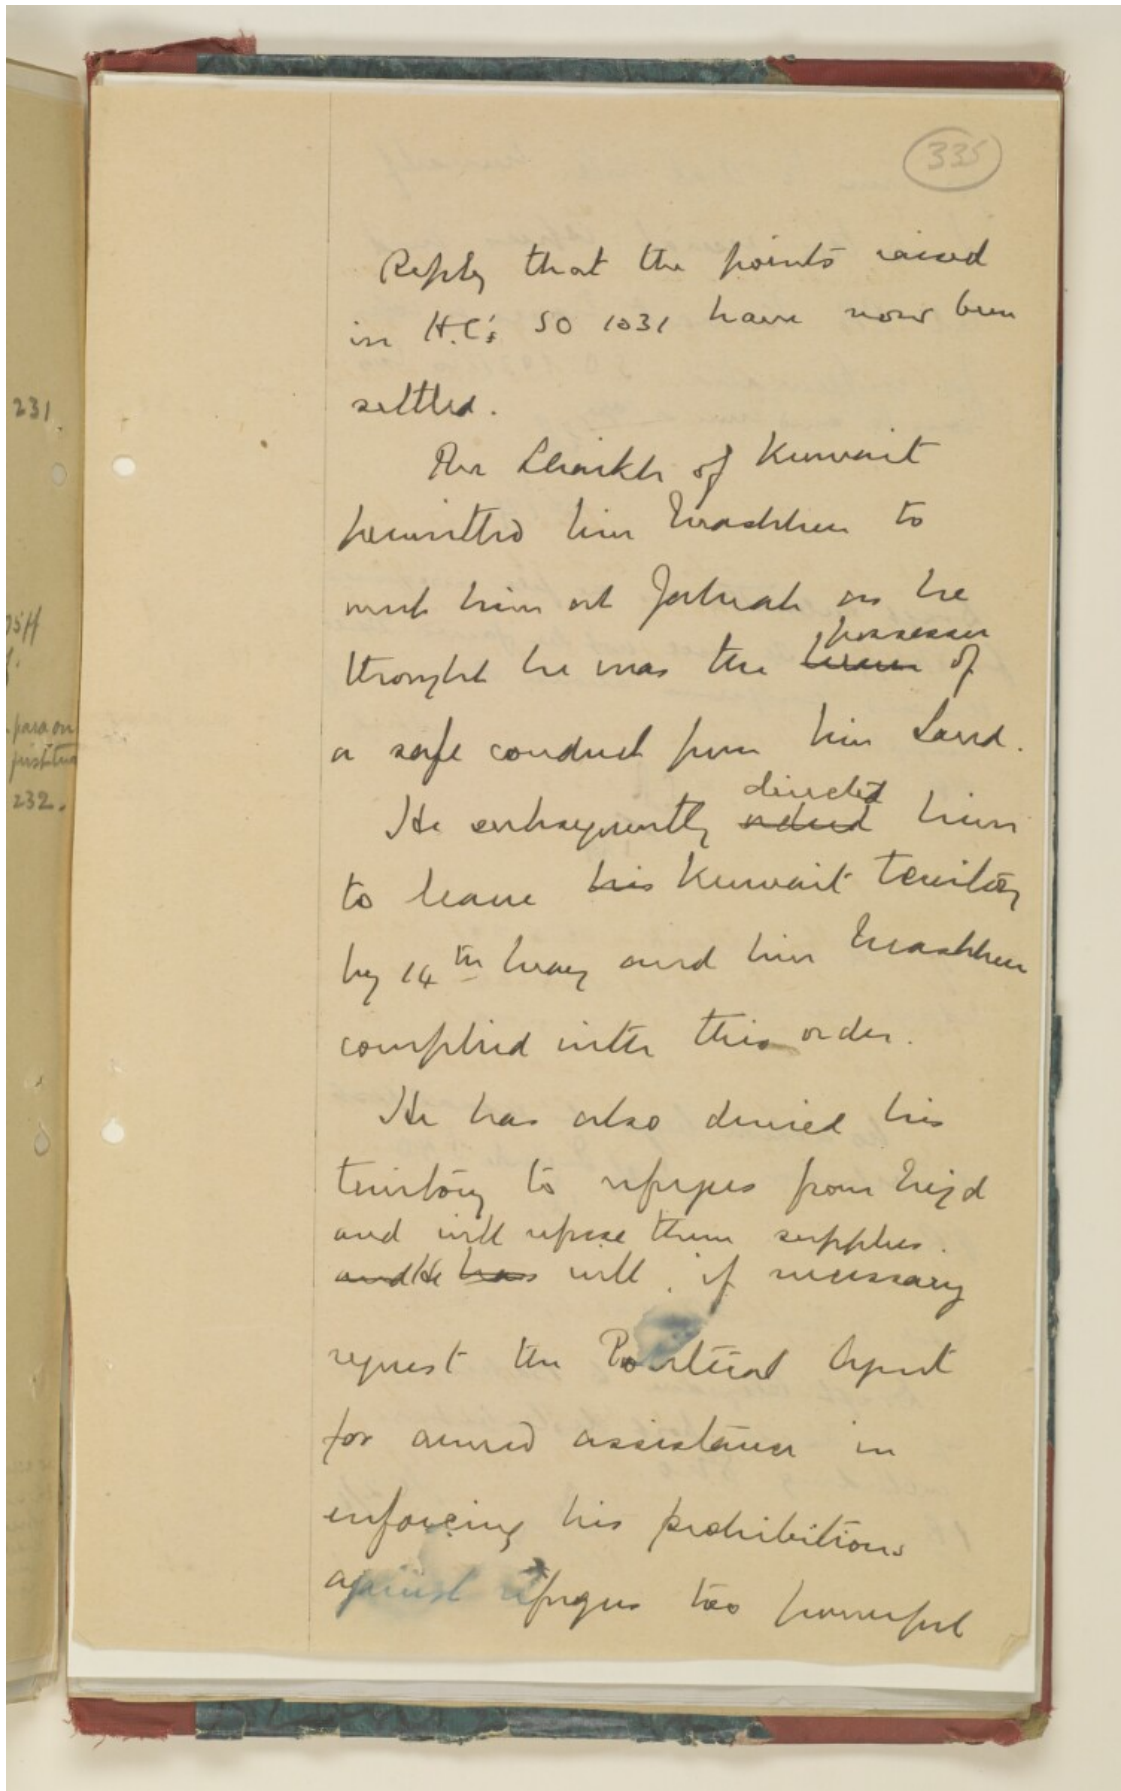 335
Reply that the points raised
in H.C's SO 1031 have now been
settled.
The Shaikh of Kuwait
permitted ibn Mashhur to
meet him at Jahrah as he
possessor
thought he was the of
a safe conduct from ibn Saud.
directed
He subsequently him
to leave his Kuwait territory
by 14th May and ibn Mashhur
complied with this order.
He has also denied his
territory to refugees from Nejd
and will refuse them supplies.
and He has will, if necessary
request the Political Agent
for armed assistance in
enforcing his prohibitions
against refugees too powerful
231
para on
232.